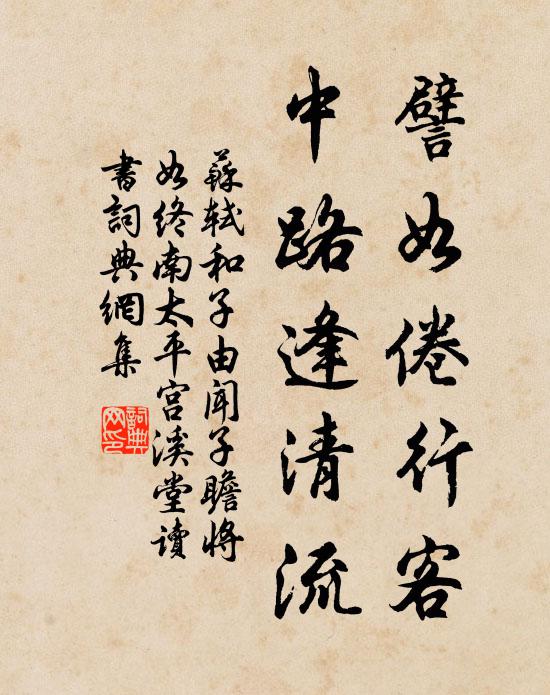 譬如倦行客
中路逢清流
蘇軾和子由聞子瞻將
如終南太平宮溪堂讀
書詞典網集
詞典網印